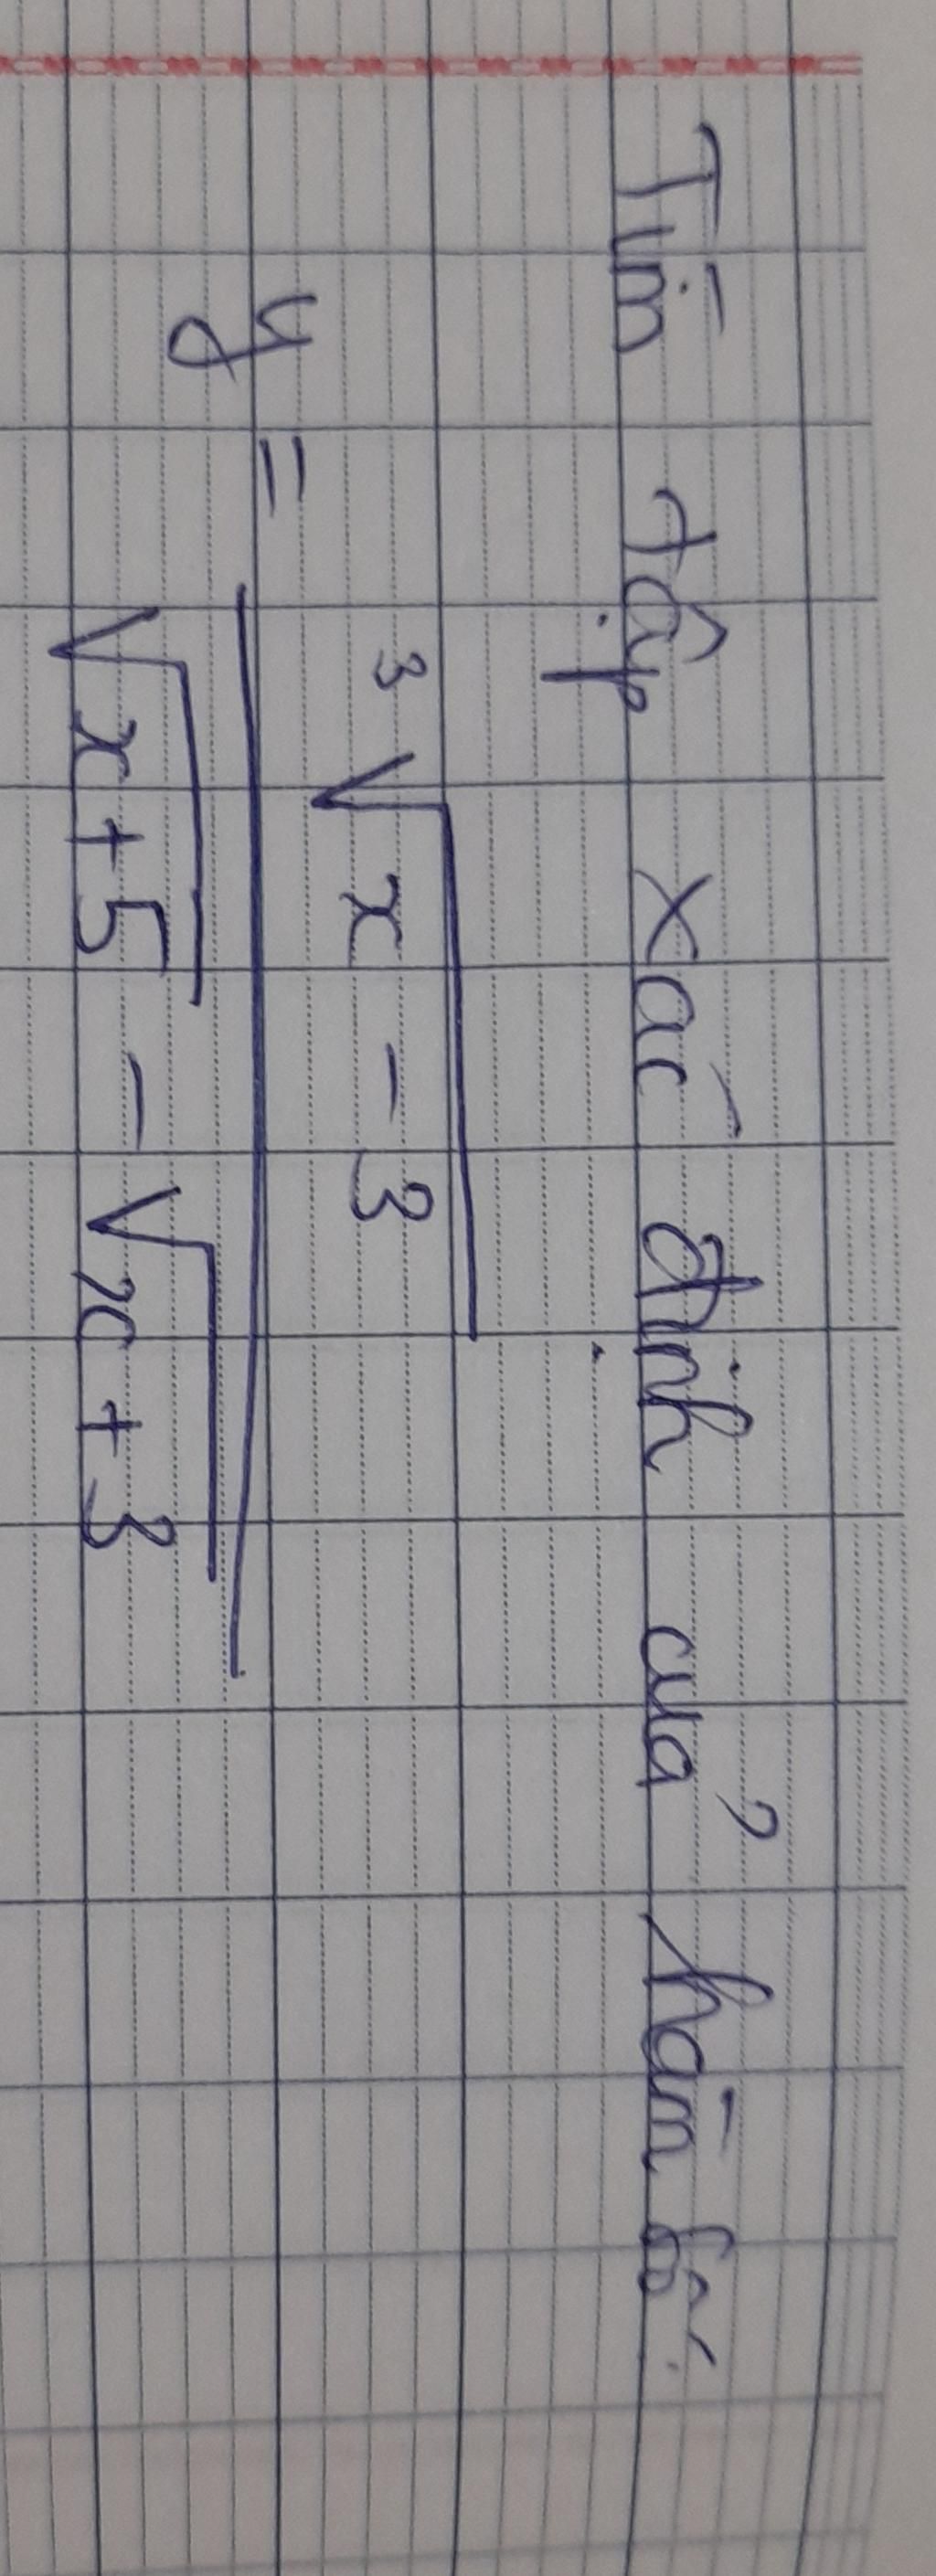 Tìm tập xác định của hàm số:
y = \frac{\sqrt[3]{x - 3}}{\sqrt{x + 5} - \sqrt{x + 3}}